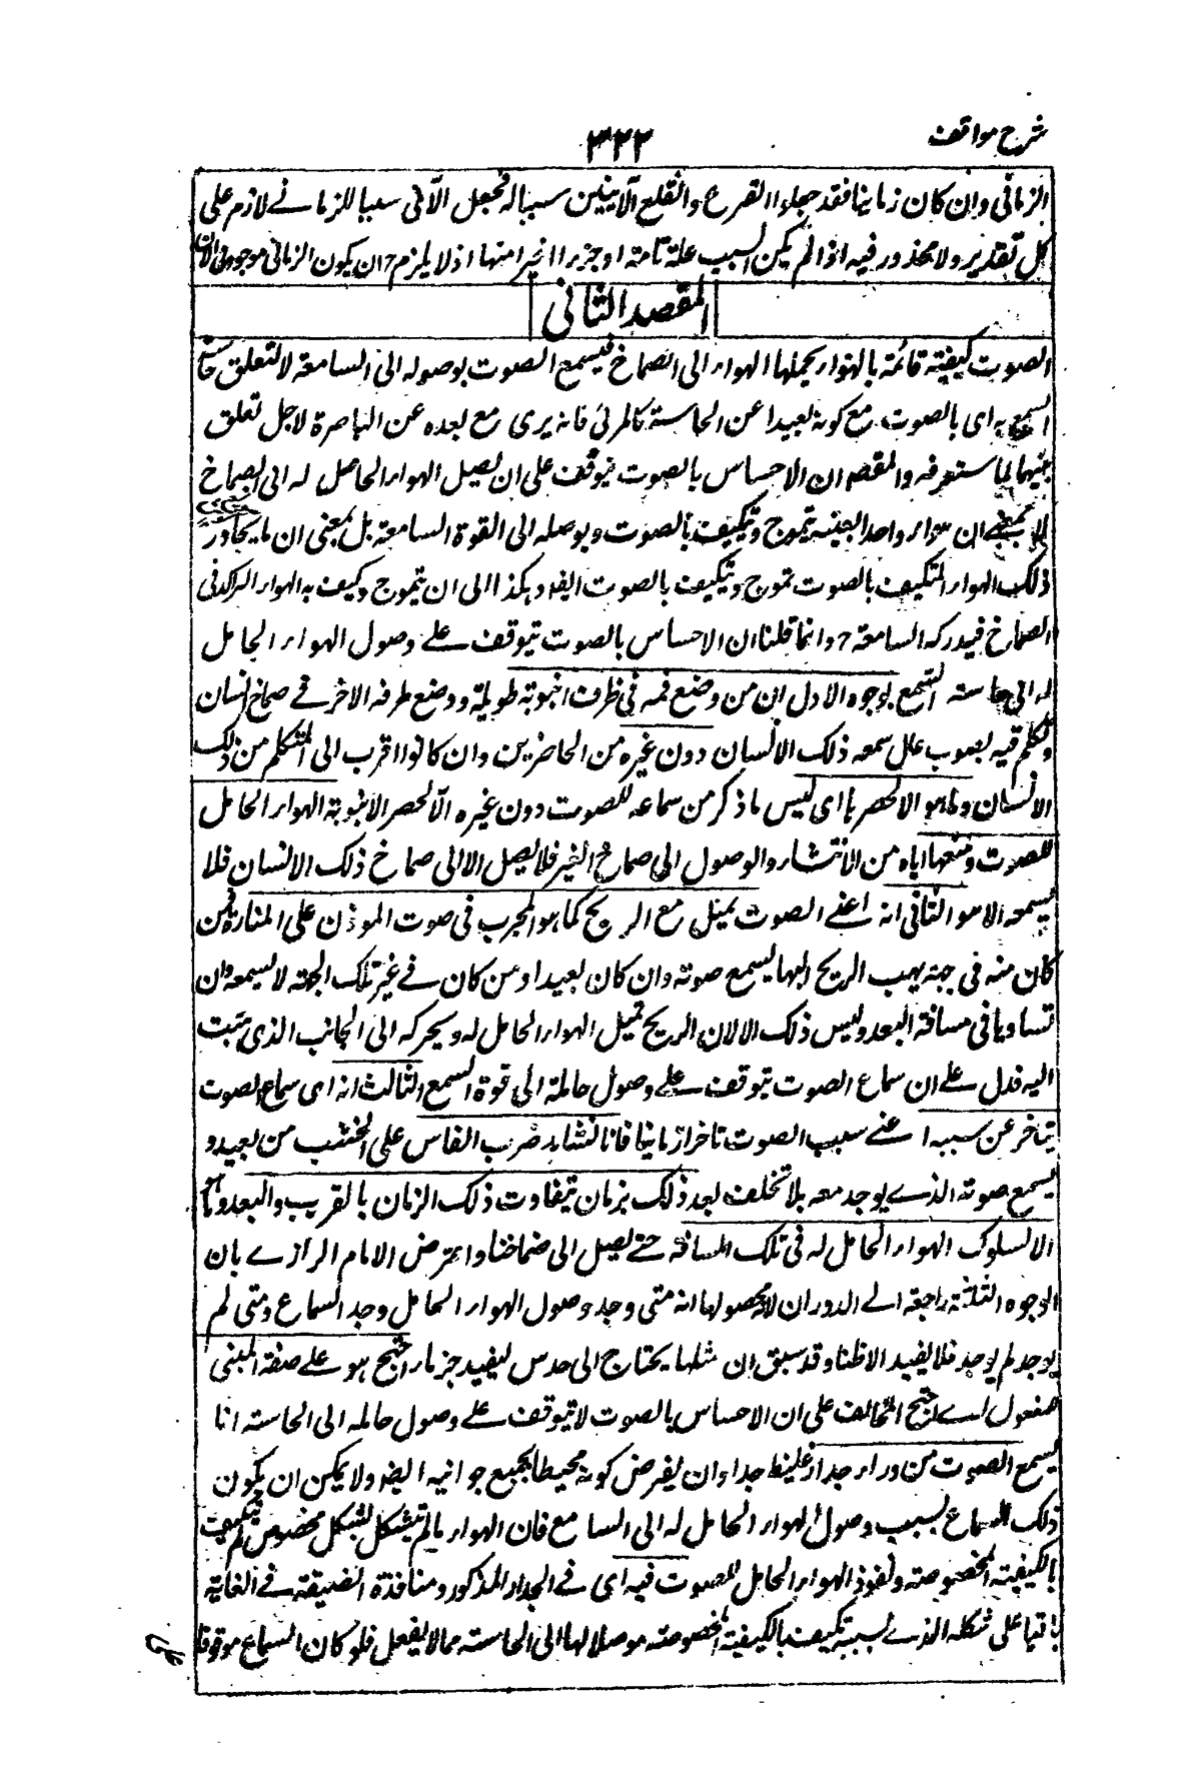 شرح مواقف
٣٢٢
الزمانى وان كان زمانيا فقد جعلوا القرع والقلع الآنيين سببا له فجعل الآنى سببا للزمانے لازم على
كل تقدير ولا محذور فيه اذا لم يكن السبب علة تامة او جزءا اخيرا منها اذ لا يلزم ح ان يكون الزمانى موجودا فى الآن
المقصد الثانى
الصوت كيفية قائمة بالهواء يحملها الهواء الى الصماخ فيسمع الصوت بوصوله الى السامعة لا لتعلق حاسة
السمع به اى بالصوت مع كونه بعيدا عن الحاسة كالمرئى فانه يرى مع بعده عن الباصرة لاجل تعلق
بينهما لما ستعرفه والمقصد ان الاحساس بالصوت يتوقف على ان يصل الهواء الحامل له الى الصماخ
لا بمعنى ان هواء واحدا بعينه يتموج ويتكيف بالصوت ويوصله الى القوة السامعة بل بمعنى ان ما يجاور
ذلك الهواء المتكيف بالصوت يتموج ويتكيف بالصوت ايضا وهكذا الى ان يتموج وكيف به الهواء الراكد فى
الصماخ فيدركه السامعة ح وانما قلنا ان الاحساس بالصوت يتوقف علے وصول الهواء الحامل
له الى حاسته السمع لوجوه الاول ان من وضع فمه فى طرف انبوبة طويلة ووضع طرفه الاخر فے صماخ انسان
وتكلم فيه بصوت عال سمعه ذلك الانسان دون غيره من الحاضرين وان كانوا اقرب الى المتكلم من ذلك
الانسان وما هو الا لحصرها اى ليس ما ذكر من سماعه للصوت دون غيره الا لحصر الانبوبة الهواء الحامل
للصوت ومنعها اياه من الانتشار والوصول الى صماخ الغير فلا يصل الا الى صماخ ذلك الانسان فلا
يسمعه الا هو الثانى انه اعنے الصوت يميل مع الريح كما هو المجرب فى صوت الموذن على المنارة فمن
كان منه فى جهة يهب الريح اليها يسمع صوته وان كان بعيدا ومن كان فے غير تلك الجهة لا يسمعه وان
تساويا فى مسافة البعد وليس ذلك الا لان الريح تميل الهواء الحامل له ويحركه الى الجانب الذى هبت
اليه فدل علے ان سماع الصوت يتوقف علے وصول حامله الى قوة السمع الثالث انه اى سماع الصوت
يتاخر عن سببه اعنے سبب الصوت تاخرا زمانيا فانا نشاهد ضرب الفاس على الخشب من بعيد و
يسمع صوته الذے يوجد معه بلا تخلف بعد ذلك بزمان يتفاوت ذلك الزمان بالقرب والبعد وما هو
الا لسلوك الهواء الحامل له فى تلك المسافة حتے يصل الى صماخنا واعترض الامام الرازے بان
الوجوه الثلثة راجعة الے الدوران لا محصولها انه متى وجد وصول الهواء الحامل وجد السماع ومتى لم
يوجد لم يوجد فلا يفيد الا ظنا وقد سبق ان مثلها يحتاج الى حدس ليفيد جزما احتج هو علے صفة المبنى
مفعول اے احتج المخالف على ان الاحساس بالصوت لا يتوقف علے وصول حامله الى الحاسته انا
يسمع الصوت من وراء جدار غليظ جدا وان يفرض كونه محيطا بجميع جوانبه ايضا ولا يمكن ان يكون
ذلك السماع بسبب وصول الهواء الحامل له الى السامع فان الهواء مالم يتشكل بشكل مخصوص لم يتكيف
بالكيفية المخصوصة ونفوذ الهواء الحامل للصوت فيه اى فے الجدار المذكور ومنافذه الضيقة فے الغاية
باقيا على شكله الذے بسببه تكيف بالكيفية المخصوصة موصلا لها الى الحاسته مما لا يفعل فلو كان السماع موقوفا